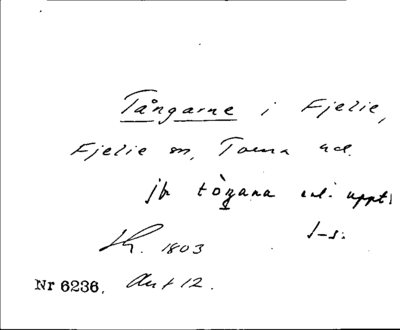 Tångarne i Fjelie,
Fjelie sn, Torna hd.
jfr tògana enl. uppt.
Sk. 1803
Nr 6236. Akt 12.